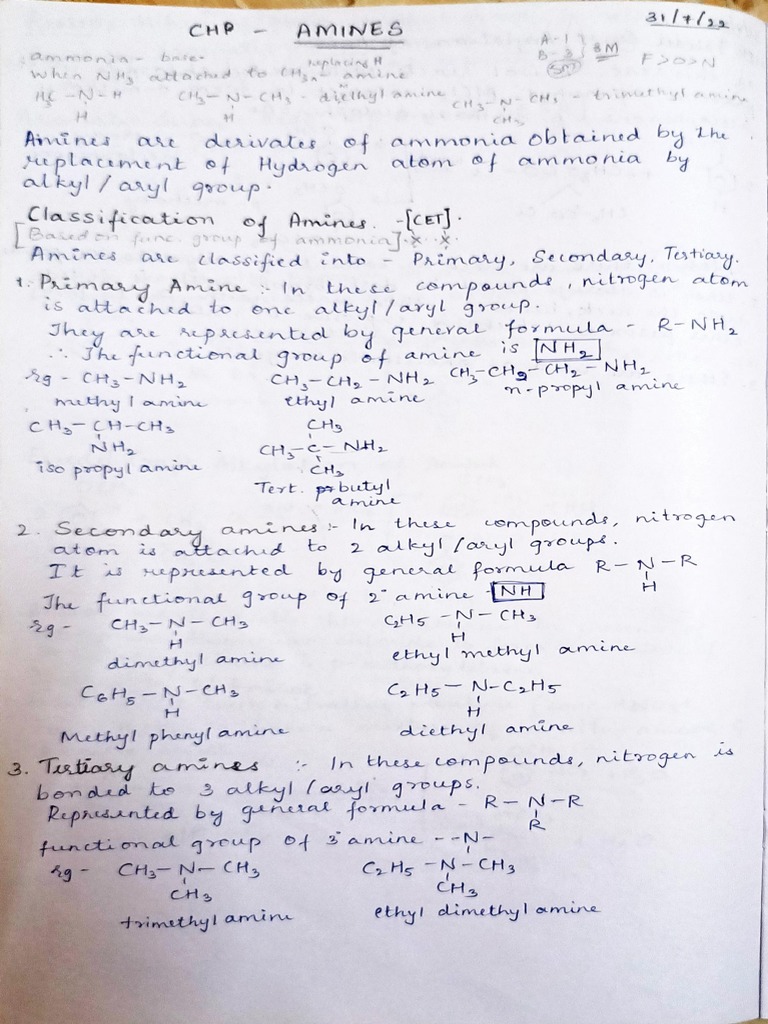 31/7/22
CHP - AMINES
A-1
B-3 } 8M
5M
F>O>N
ammonia - base.
replacing H
When NH3 attached to CH3, amine
H3C-N-H CH3-N-CH3 - diethyl amine CH3-N-CH3 - trimethyl amine
H H CH3
Amines are derivates of ammonia obtained by the
replacement of Hydrogen atom of ammonia by
alkyl/aryl group.
Classification of Amines. -[CET].
[Based on func. group of ammonia].x..x.
Amines are classified into - Primary, Secondary, Tertiary.
1. Primary Amine :- In these compounds, nitrogen atom
is attached to one alkyl/aryl group.
They are represented by general formula - R-NH2
∴ The functional group of amine is NH2
eg - CH3-NH2 CH3-CH2-NH2 CH3-CH2-CH2-NH2
methyl amine ethyl amine n-propyl amine
CH3-CH-CH3 CH3
NH2 CH3-C-NH2
iso propyl amine CH3
Tert. butyl
amine
2. Secondary amines :- In these compounds, nitrogen
atom is attached to 2 alkyl/aryl groups.
It is represented by general formula R-N-R
H
The functional group of 2° amine - NH
eg - CH3-N-CH3 C2H5-N-CH3
H H
dimethyl amine ethyl methyl amine
C6H5-N-CH3 C2H5-N-C2H5
H H
Methyl phenyl amine diethyl amine
3. Tertiary amines :- In these compounds, nitrogen is
bonded to 3 alkyl/aryl groups.
Represented by general formula - R-N-R
R
functional group of 3° amine - -N-
eg - CH3-N-CH3 C2H5-N-CH3
CH3 CH3
trimethyl amine ethyl dimethyl amine